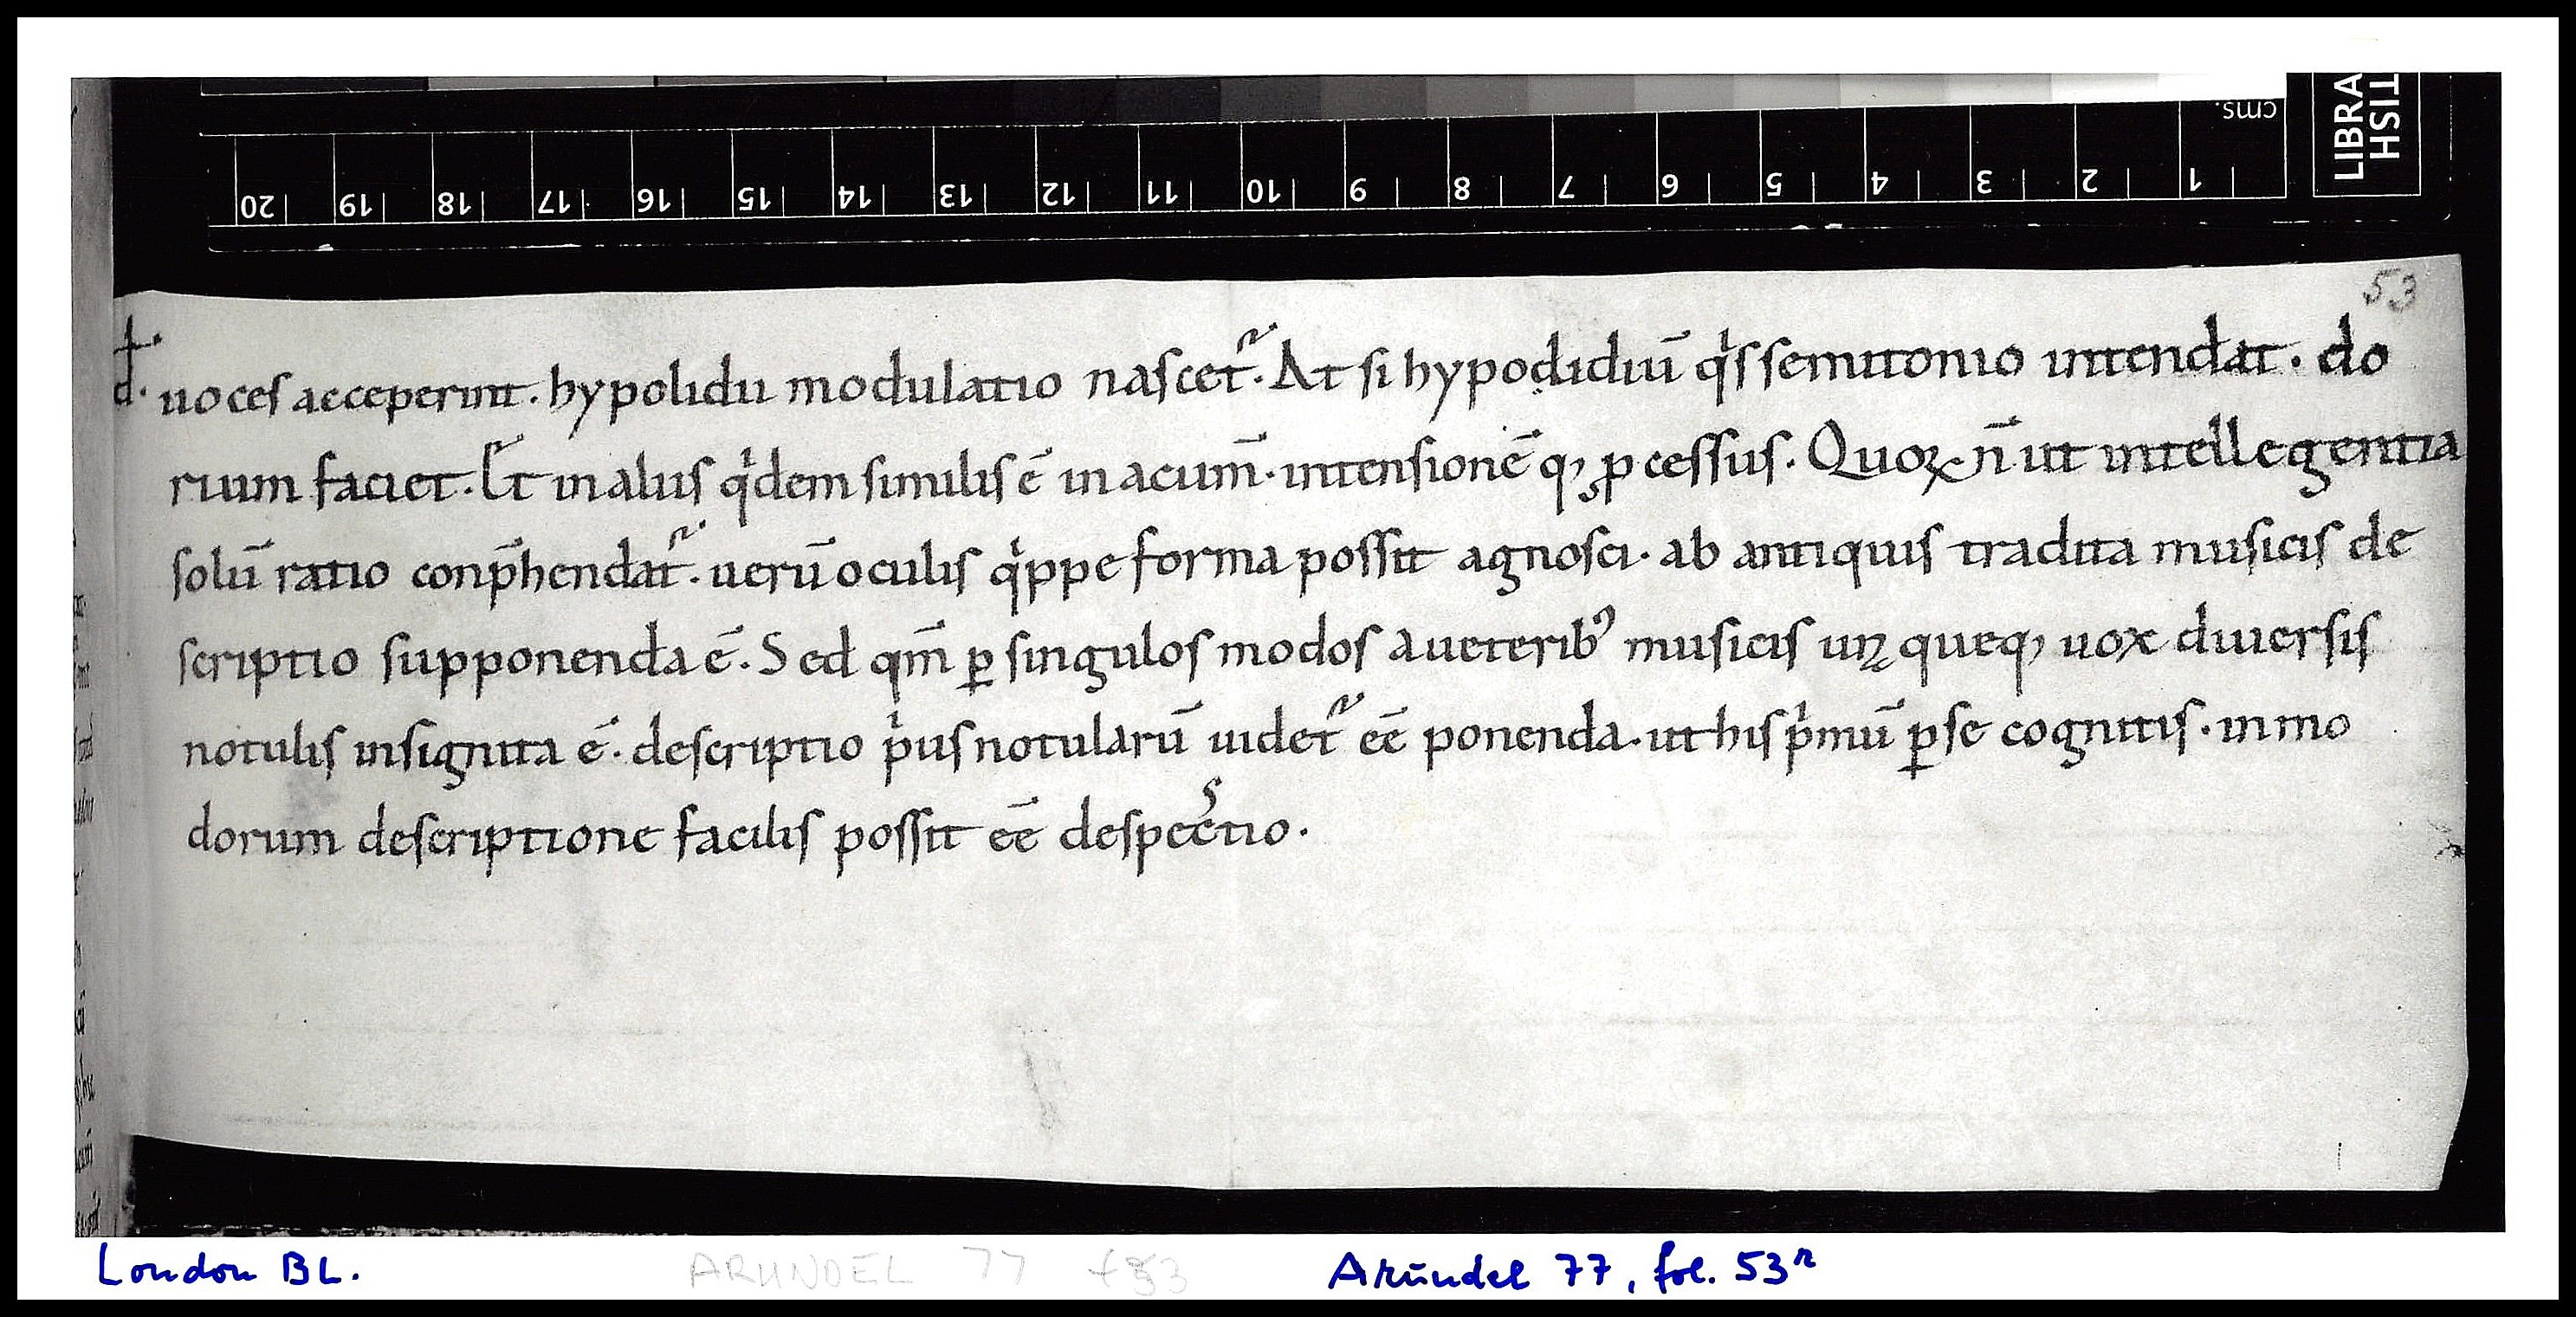 cms.
20 19 18 17 16 15 14 13 12 11 10 9 8 7 6 5 4 3 2 1
LIBRA
TISH
53
đ. uoces acceperint. hypolidii modulatio nascet᷑. At si hypodidiū qͥs semitonio intendat. do
rium faciet. Et in aliis qͥdem similis ē in acum̄. intensionē qꝫ ꝓcessus. Quoꝝ n̄ ut intellegentia
solū ratio conp̄hendat᷑. uerū oculis qͥppe forma possit agnosci. ab antiquis tradita musicis de
scriptio supponenda ē. Sed qm̄ ꝑ singulos modos a ueteribꝰ musicis unaqueqꝫ uox diuersis
notulis insignita ē. descriptio pͥus notularū uidet᷑ eē ponenda. ut his pͥmū ꝑ se cognitis. in mo
dorum descriptione facilis possit eē despectio.
London BL.
ARUNDEL 77 f53
Arundel 77, fol. 53r